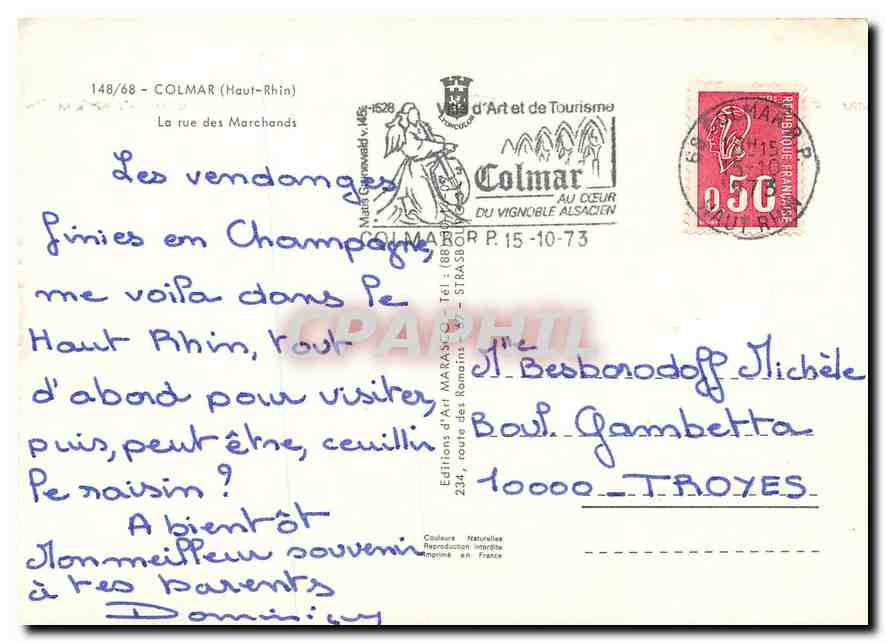 148/68 - COLMAR (Haut-Rhin)
La rue des Marchands
Les vendanges
finies en Champagne,
me voila dans le
Haut Rhin, tout
d'abord pour visiter,
puis, peut être, ceuillir
le raisin ?
A bientôt
Mon meilleur souvenir
à tes parents
Dominique
LYONCOLOR
-1528
Ville d'Art et de Tourisme
Colmar
AU CŒUR
DU VIGNOBLE ALSACIEN
COLMAR R.P. 15-10-73
REPUBLIQUE FRANÇAISE
0,50
68 COLMAR R.P.
15-10
1973
HAUT RHIN
Editions d'Art MARASCO - Tél : (88)
234, route des Romains - 67 - STRASBOURG
CPAPHIL
Mlle Besborodoff Michèle
Boul. Gambetta
10000 - TROYES
Couleurs Naturelles
Reproduction Interdite
Imprimé en France